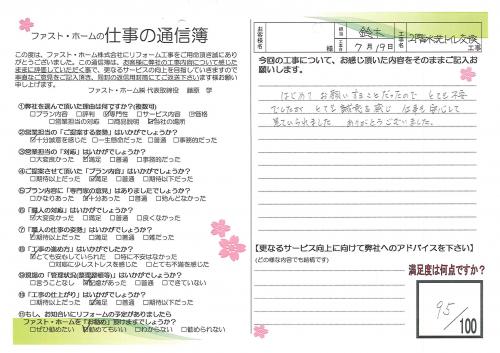 ファスト・ホームの 仕事の通信簿
この度は、ファスト・ホーム株式会社にリフォーム工事をご用命頂き誠にあり
がとうございました。この度は、お客様に弊社の工事内容について感じた
ままに評価していただく事で、更なるサービスの向上を目指していきますので
率直なご意見をご記入頂き、同封の返信用封筒にてご返送下さいます様お願い
申し上げます。
ファスト・ホーム㈱ 代表取締役 藤原 学
①弊社を選んで頂いた理由は何ですか?(複数可)
□プラン内容 □評判 ☑専門性 □サービス内容 □価格
□営業担当の対応 □商品説明 ☑会社の場所
②営業担当の「ご提案する姿勢」はいかがでしょうか?
☑十分誠意を感じた □一生懸命だった □普通 □事務的だった
③営業担当の「対応」はいかがでしょうか?
□大変良かった ☑満足 □普通 □事務的だった
④ご提案させて頂いた「プラン内容」はいかがでしょうか?
□期待以上だった ☑満足 □普通 □期待以下だった
⑤プラン内容に「専門家の意見」はありましたでしょうか?
□かなりあった ☑十分あった □普通 □殆んどなかった
⑥「職人の対応」はいかがでしょうか?
☑大変良かった □満足 □普通 □良くなかった
⑦「職人の仕事の姿勢」はいかがでしょうか?
☑期待以上だった □満足 □普通 □期待以下だった
⑧「工事の進め方」はいかがでしょうか?
☑とても安心していられた □特に不安はなかった
□対応に少しストレスを感じた □とても不満を感じた
⑨現場の「管理状況(整理整頓等)」はいかがでしょうか?
□言うことなし ☑配慮があった □普通 □できていない
⑩「工事の仕上がり」はいかがでしょうか?
□期待以上だった ☑満足 □普通 □期待以下だった
⑪もし、お知合いにリフォームの予定がありましたら
ファスト・ホームを「お勧め」頂けますでしょうか?
□ぜひ勧めたい ☑勧めてもいい □わからない □勧められない
お客様名 鈴木 様
工事日 7月19日
工事名 2階水洗トイレ交換工事
今回の工事について、お感じ頂いた内容をそのままご記入お
願いします。
はじめてお願いすることだったので とても不安
でしたが とても誠実を感じ 仕事も安心して
見ていられました。 ありがとうございました。
【更なるサービス向上に向けて弊社へのアドバイスを下さい】
(どの様な内容でも結構です)
満足度は何点ですか?
95/100